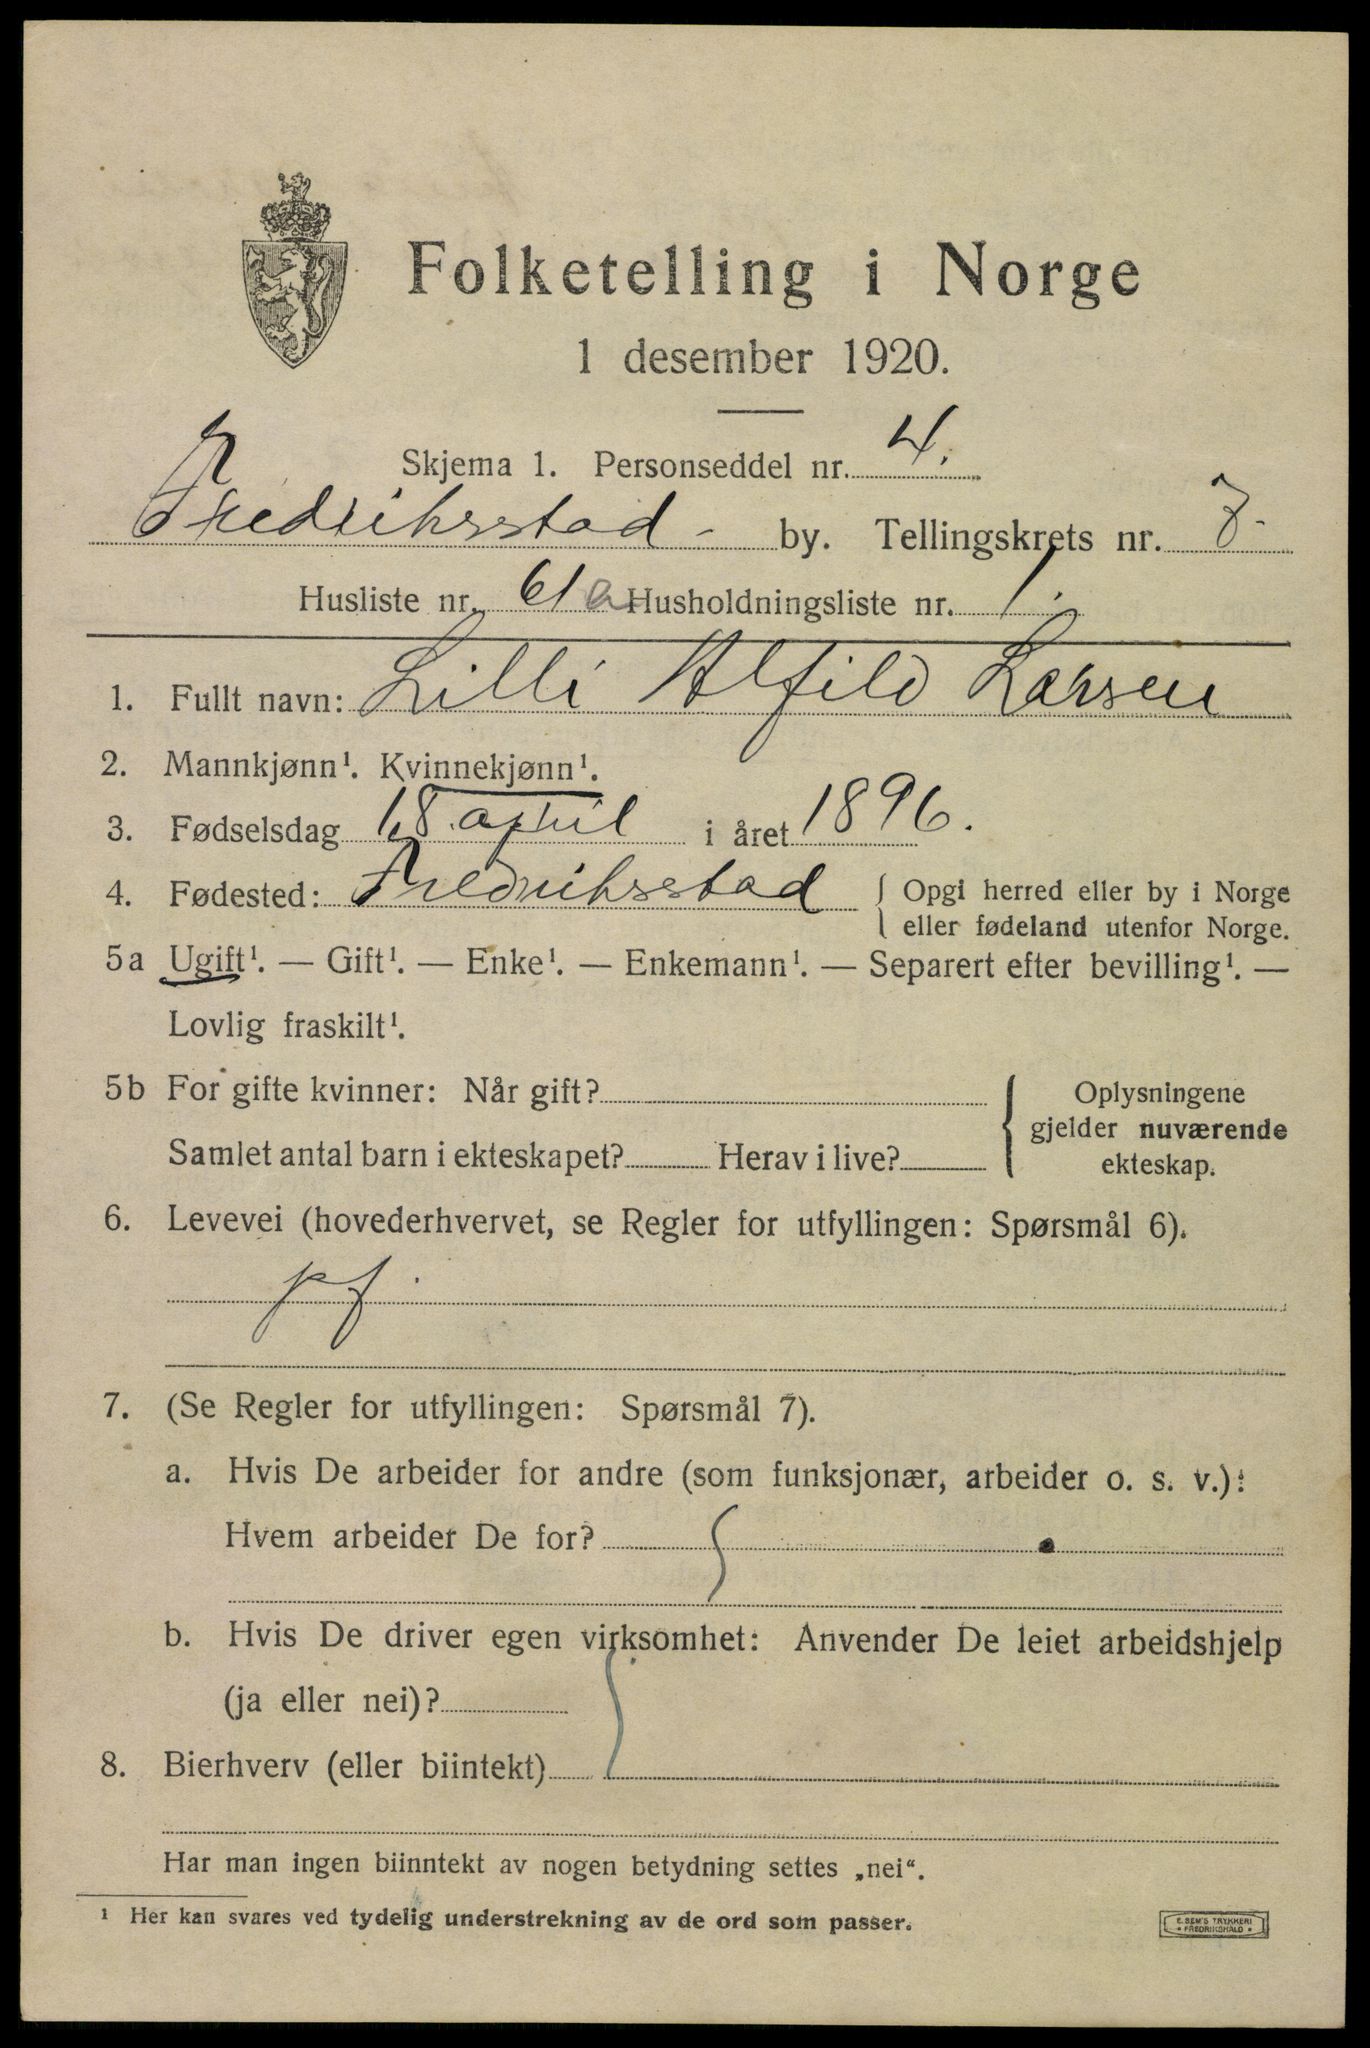 Folketelling i Norge
1 desember 1920.
Skjema 1. Personseddel nr. 4.
Fredriksstad - by. Tellingskrets nr. 7.
Husliste nr. 61a Husholdningsliste nr. 1.
1. Fullt navn: Lilli Alfild Larsen
2. Mannkjønn¹. Kvinnekjønn¹.
3. Fødselsdag 18. april i året 1896.
4. Fødested: Fredriksstad { Opgi herred eller by i Norge
eller fødeland utenfor Norge.
5a Ugift¹. — Gift¹. — Enke¹. — Enkemann¹. — Separert efter bevilling¹. —
Lovlig fraskilt¹.
5b For gifte kvinner: Når gift? Oplysningene
gjelder nuværende
Samlet antal barn i ekteskapet? Herav i live? ekteskap.
6. Levevei (hovederhvervet, se Regler for utfyllingen: Spørsmål 6).
pf.
7. (Se Regler for utfyllingen: Spørsmål 7).
a. Hvis De arbeider for andre (som funksjonær, arbeider o. s. v.):
Hvem arbeider De for?
b. Hvis De driver egen virksomhet: Anvender De leiet arbeidshjelp
(ja eller nei)?
8. Bierhverv (eller biintekt)
Har man ingen biinntekt av nogen betydning settes „nei“.
¹ Her kan svares ved tydelig understrekning av de ord som passer.
E. SEM'S TRYKKERI
* FREDRIKSHALD *